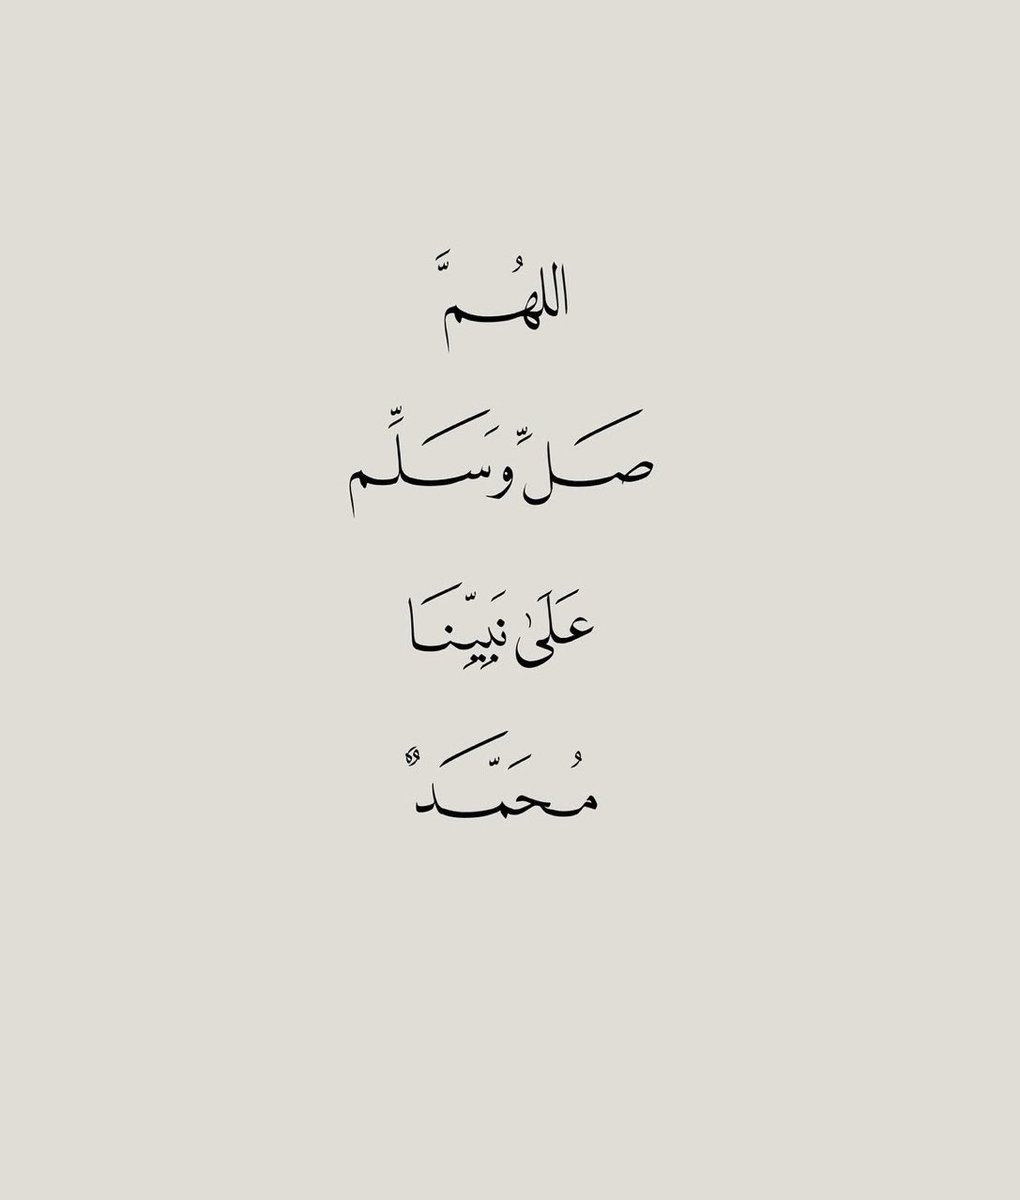 اللهُمَّ
صَلِّ وَسَلِّم
عَلَىٰ نَبِيِّنَا
مُحَمَّدٌ